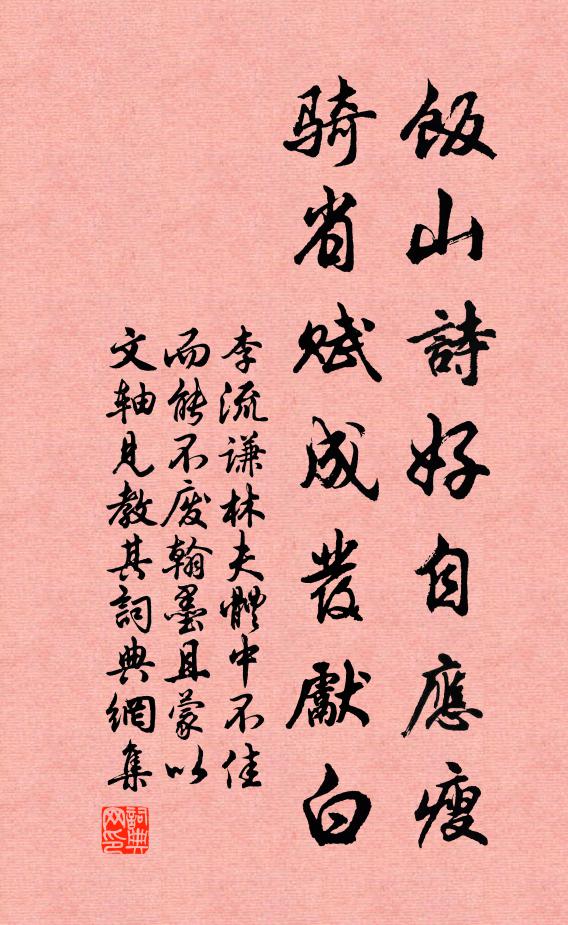 飯山詩好自應瘦
騎省賦成發獻白
李流谦林夫體中不佳
而能不废翰墨且蒙以
文轴見教其詞典網集
詞典网印